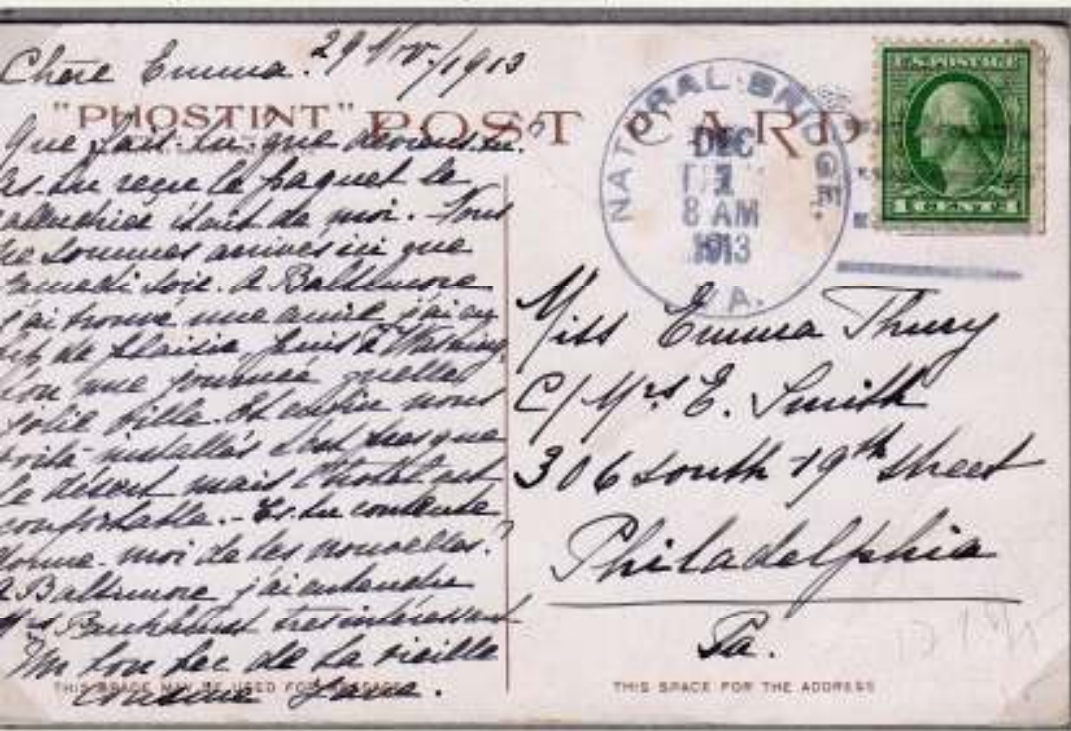 Chère Emma. 29 Nov./1913
"PHOSTINT" POST CARD
Que fais-tu que deviens-tu.
as-tu reçu le paquet le
était de moi.
ne sommes arrivés ici que
samedi soir. A Baltimore
j'ai trouvé une amie j'ai eu
de plaisir puis à Washing
ton une journée quelle
jolie ville. Et enfin nous
voilà installés que
le désert mais l'hotel est
confortable. - Es-tu contente
donne-moi de tes nouvelles.
A Baltimore j'ai entendu
Mrs Pankhurst tres intéressant
Un bon bec de ta vieille
THIS SPACE MAY BE USED FOR
cousine
NATURAL BRIDGE.
DEC
1
8 AM
1913
VA.
U.S. POSTAGE
1 CENT 1
Miss Emma Thury
C/ Mrs E. Smith
306 south 19th street
Philadelphia
Pa.
THIS SPACE FOR THE ADDRESS